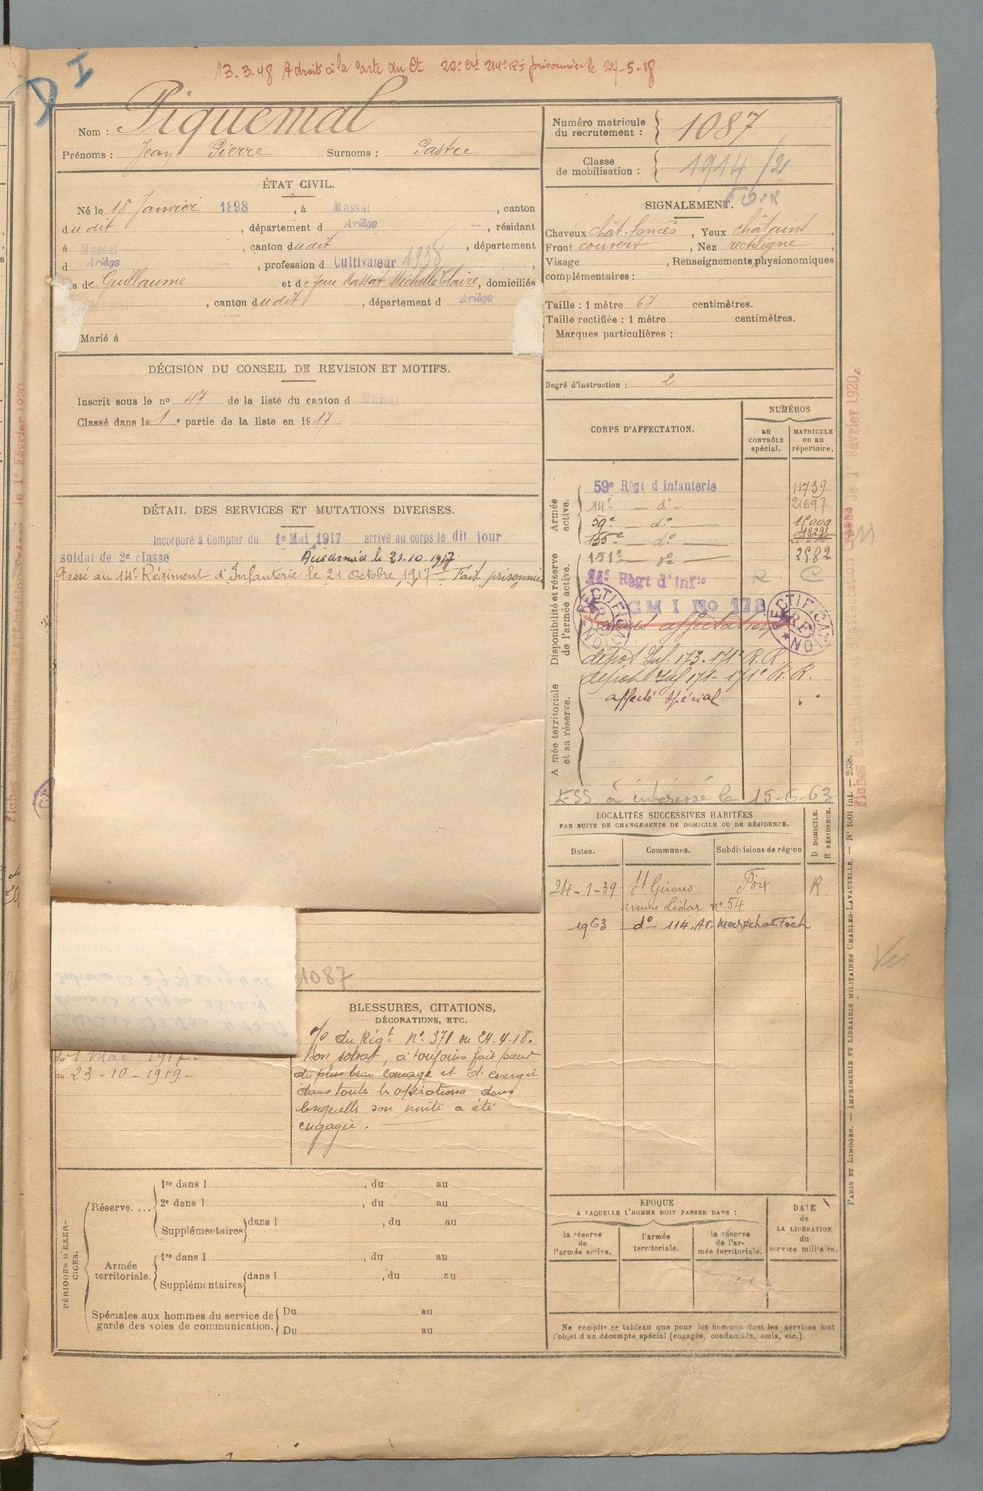 D I
13.3.48 A droit à la Carte du Ct prisonnier le 27-5-18
Nom : Piquemal
Prénoms : Jean Pierre Surnoms : Pastre
ÉTAT CIVIL.
Né le 18 Janvier 1898, à Massat, canton
dudit, département d Ariège, résidant
à Massat, canton dudit, département
d Ariège, profession d Cultivateur 1938
s de Guillaume et de feue Massat Michelle Claire, domiciliés
, canton dudit, département d Ariège
Marié à
DÉCISION DU CONSEIL DE REVISION ET MOTIFS.
Inscrit sous le no 47 de la liste du canton d Massat
Classé dans la 1e partie de la liste en 1917.
DÉTAIL DES SERVICES ET MUTATIONS DIVERSES.
Incorporé à Compter du 1e Mai 1917 arrivé au corps le dit jour
soldat de 2e classe Aux armées le 21.10.1917
Passé au 14e Régiment d'Infanterie le 21 octobre 1917. Fait prisonnier
1087
du 1 Mai 1917
au 23-10-1919
BLESSURES, CITATIONS,
DÉCORATIONS, ETC.
o/o du Régt no 371 du 24.4.18.
Bon soldat, a toujours fait preuve
du plus beau courage et d'énergie
dans toutes les opérations dans
lesquelles son unité a été
engagée.
PÉRIODES D'EXERCICES.
Réserve....
1re dans l , du au
2e dans l , du au
Supplémentaires dans l , du au
Armée territoriale.
1re dans l , du au
Supplémentaires dans l , du au
Spéciales aux hommes du service de garde des voies de communication.
Du au
Du au
Numéro matricule du recrutement : 1087
Classe de mobilisation : 1914/2
Foix
SIGNALEMENT.
Cheveux chât. foncés, Yeux châtains
Front couvert, Nez rectiligne
Visage , Renseignements physionomiques
complémentaires :
Taille : 1 mètre 67 centimètres.
Taille rectifiée : 1 mètre centimètres.
Marques particulières :
Degré d'instruction : 2
CORPS D'AFFECTATION.
NUMÉROS
AU CONTRÔLE spécial.
MATRICULE OU AU répertoire.
Armée active.
59e Régt d'Infanterie 11739
14e — do — 21697
59e — do —
135e — do —
151e — do — 2982
Disponibilité et réserve de l'armée active.
Régt d'Infie R C
RECTIFICATION
C M I No 173
RECTIFICATION
sans affectation
dépot Inf. 173. 171e R.R.
dépot Inf 171 - 171e R.R.
affecté spécial
Armée territoriale et sa réserve.
ESS à intéressé le 15-6-63
LOCALITÉS SUCCESSIVES HABITÉES
PAR SUITE DE CHANGEMENTS DE DOMICILE OU DE RÉSIDENCE.
Dates. Communes. Subdivisions de région
D DOMICILE. R RÉSIDENCE.
24-1-39 St Girons Foix R.
avenue no 54
1963 do 114. Av. Maréchal Foch
ÉPOQUE
A LAQUELLE L'HOMME DOIT PASSER DANS :
la réserve de l'armée active.
l'armée territoriale.
la réserve de l'armée territoriale.
DATE de LA LIBÉRATION du service militaire.
Ne remplir ce tableau que pour les hommes dont les services font
l'objet d'un décompte spécial (engagés, condamnés, omis, etc.).
PARIS ET LIMOGES. — IMPRIMERIE ET LIBRAIRIE MILITAIRES CHARLES-LAVAUZELLE. — No 1001 int. — 2638.
Vu